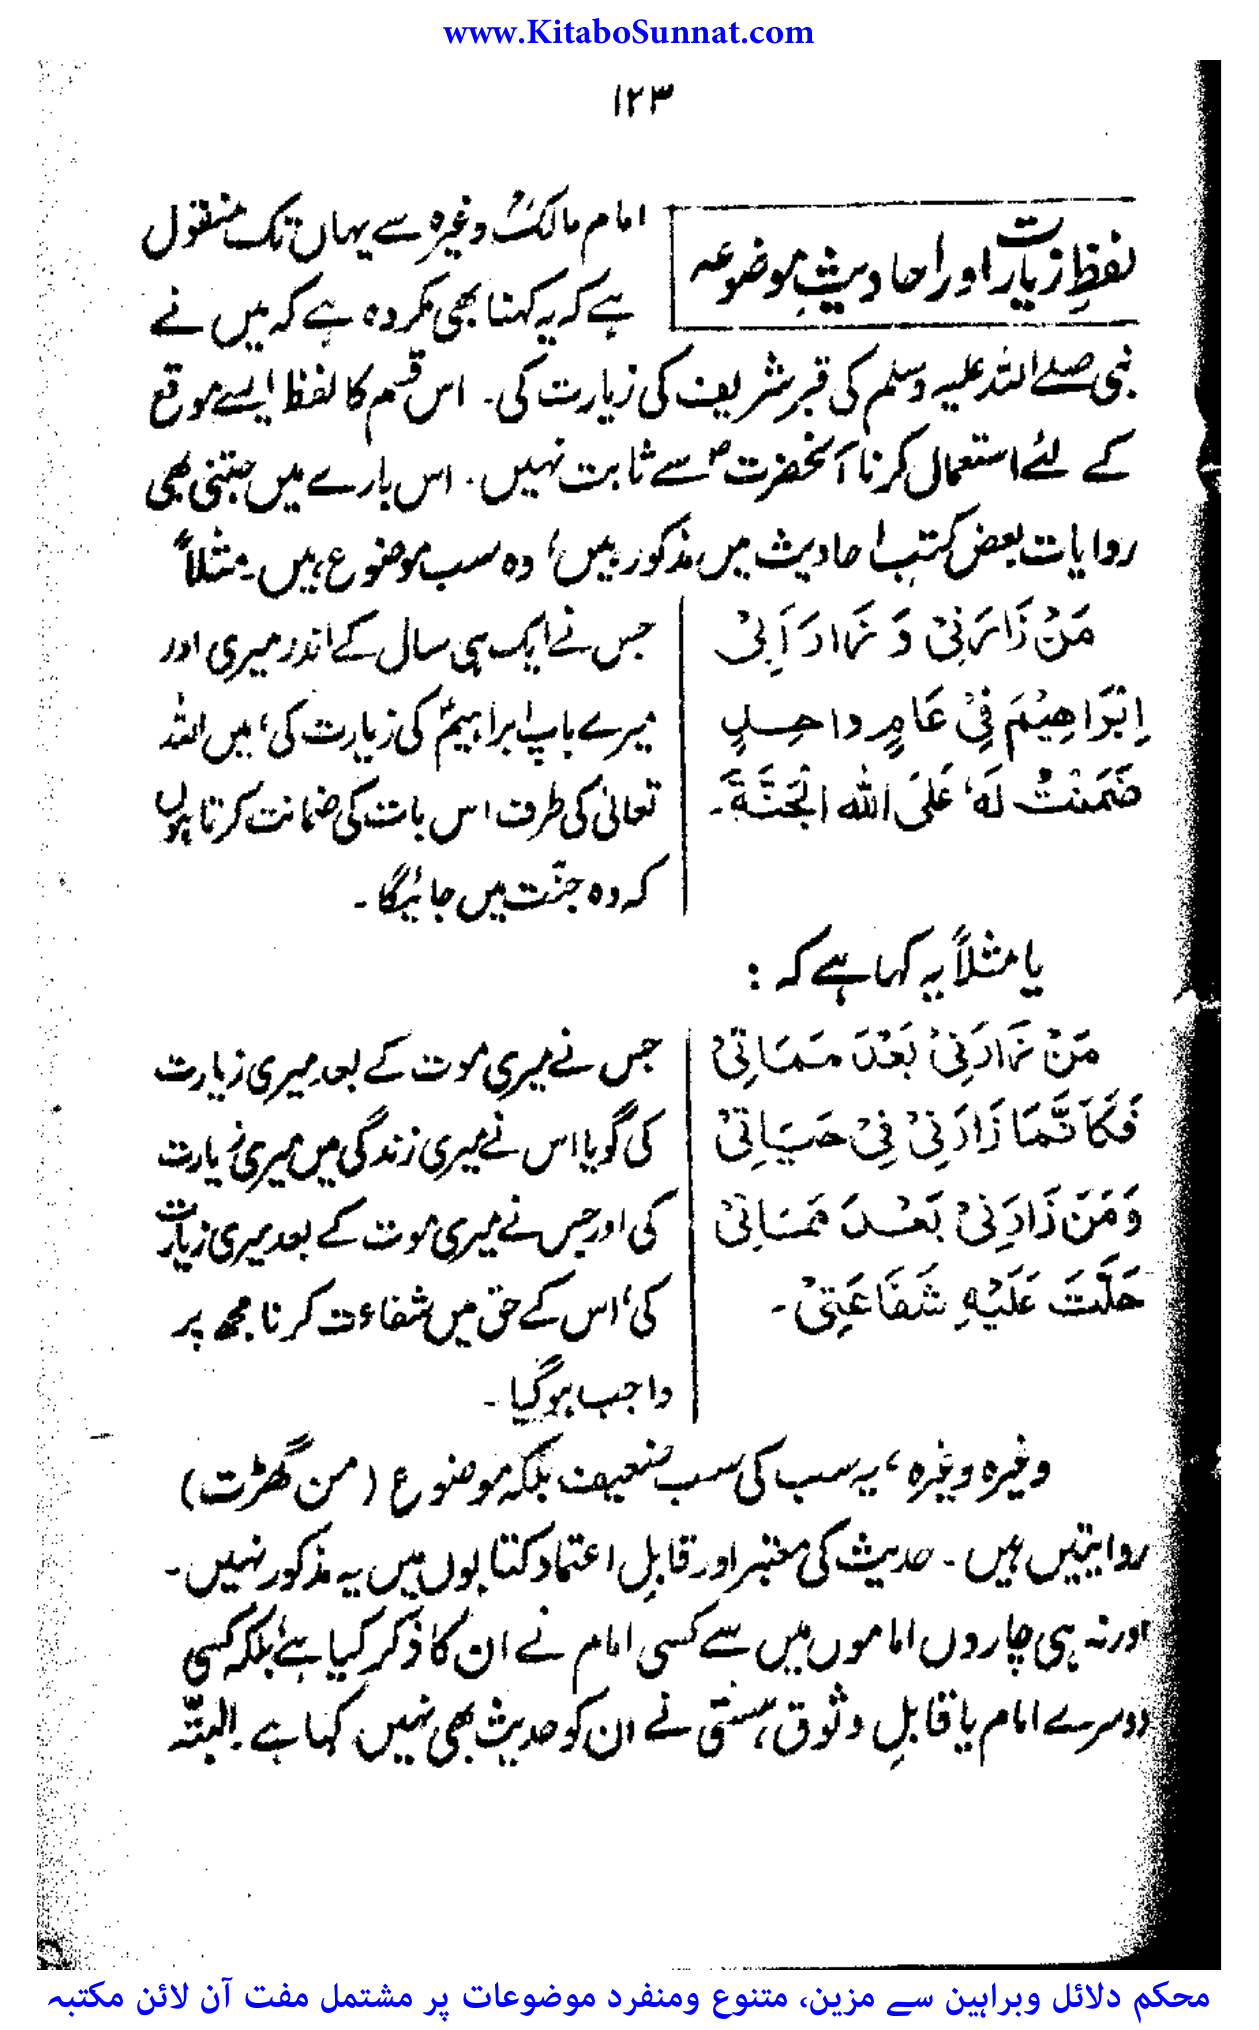 www.KitaboSunnat.com
۱۲۳
لفظِ زیارت اور احادیثِ موضوعہ
امام مالکؒ وغیرہ سے یہاں تک منقول
ہے کہ یہ کہنا بھی مکروہ ہے کہ میں نے
نبی صلے اللہ علیہ وسلم کی قبر شریف کی زیارت کی۔ اس قسم کا لفظ ایسے موقع
کے لئے استعمال کرنا آنحضرت ؐ سے ثابت نہیں۔ اس بارے میں جتنی بھی
روایات بعض کتبِ احادیث میں مذکور ہیں، وہ سب موضوع ہیں۔ مثلاً
مَنْ زَارَنِیْ وَ زَارَ اَبِیْ
اِبْرَاهِیْمَ فِیْ عَامٍ واحِدٍ
ضَمِنْتُ لَهٗ عَلَی اللہ الْجَنَّةَ۔
جس نے ایک ہی سال کے اندر میری اور
میرے باپ ابراہیمؑ کی زیارت کی، میں اللہ
تعالیٰ کی طرف اس بات کی ضمانت کرتا ہوں
کہ وہ جنّت میں جائیگا۔
یا مثلاً یہ کہا ہے کہ :
مَنْ زَارَنِیْ بَعْدَ مَمَاتِیْ
فَکَاَنَّمَا زَارَنِیْ فِیْ حَیَاتِیْ
وَمَنْ زَارَنِیْ بَعْدَ مَمَاتِیْ
حَلَّتْ عَلَیْهِ شَفَاعَتِیْ۔
جس نے میری موت کے بعد میری زیارت
کی گویا اس نے میری زندگی میں میری زیارت
کی اور جس نے میری موت کے بعد میری زیارت
کی، اس کے حق میں شفاعت کرنا مجھ پر
واجب ہوگیا۔
وغیرہ وغیرہ، یہ سب کی سب ضعیف بلکہ موضوع (من گھڑت)
روایتیں ہیں۔ حدیث کی معتبر اور قابلِ اعتماد کتابوں میں یہ مذکور نہیں۔
اور نہ ہی چاروں اماموں میں سے کسی امام نے ان کا ذکر کیا ہے، بلکہ کسی
دوسرے امام یا قابلِ وثوق ہستی نے ان کو حدیث بھی نہیں کہا ہے۔ البتّہ
محکم دلائل وبراہین سے مزین، متنوع ومنفرد موضوعات پر مشتمل مفت آن لائن مکتبہ